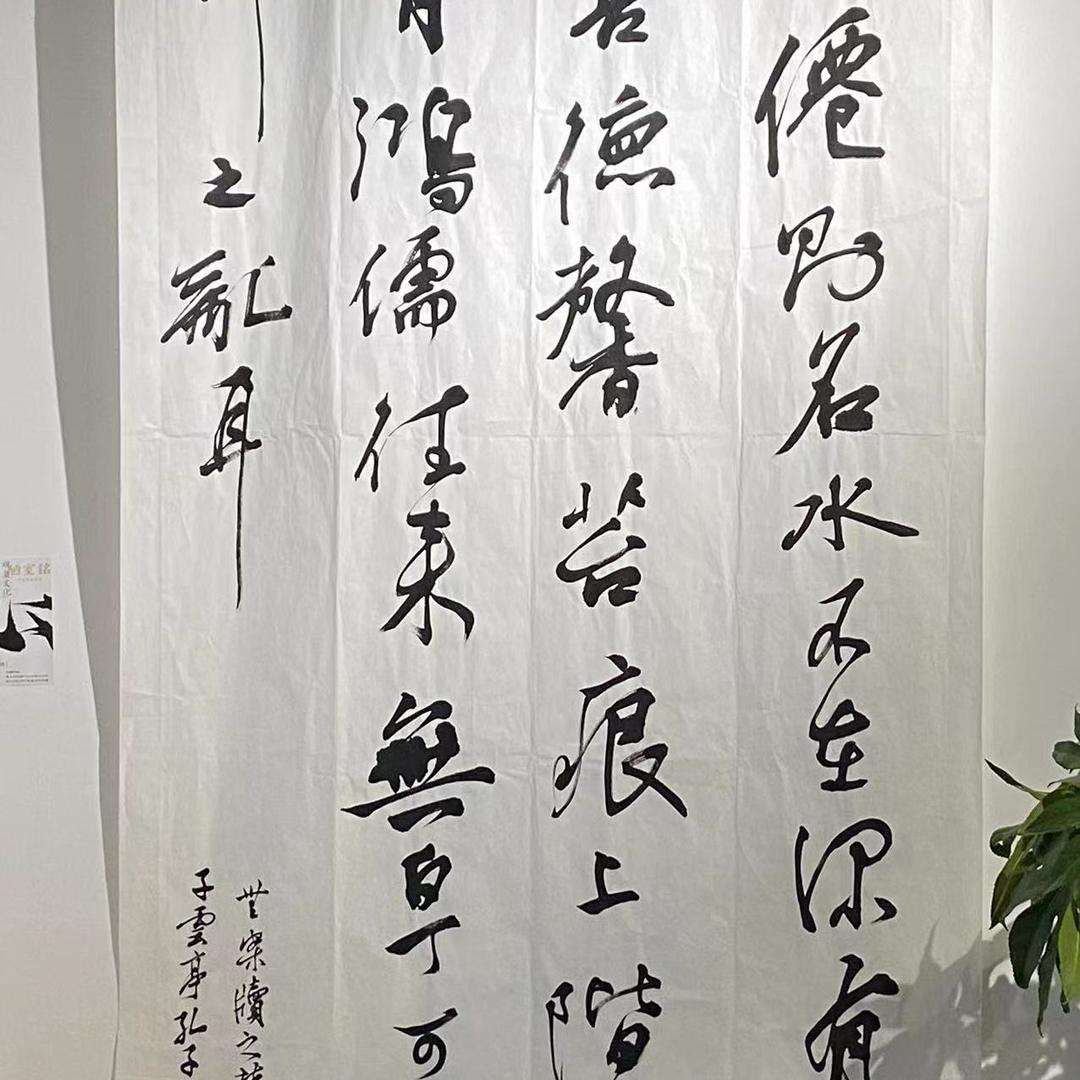 僊則名水不在深有
吾德馨苔痕上階
鴻儒往來無白丁可
之亂耳
無案牘之
子雲亭孔子